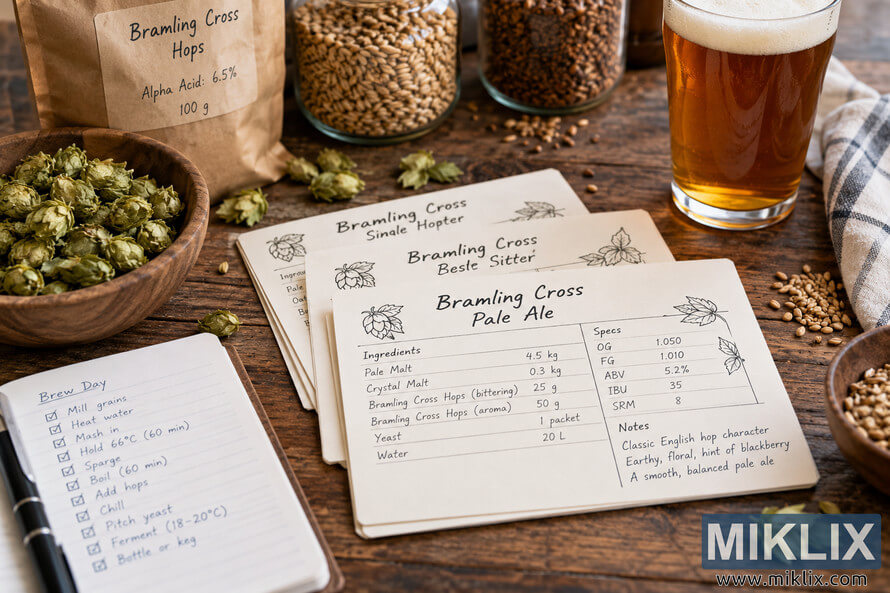 Bramling Cross
Hops
Alpha Acid: 6.5%
100 g
Bramling Cross
Sinale Hopter
Ingred
Pale
Bramling Cross
Beste Sitter
Bramling Cross
Pale Ale
Ingredients
Pale Malt 4.5 kg
Crystal Malt 0.3 kg
Bramling Cross Hops (bittering) 25 g
Bramling Cross Hops (aroma) 50 g
Yeast 1 packet
Water 20 L
Specs
OG 1.050
FG 1.010
ABV 5.2%
IBU 35
SRM 8
Notes
Classic English hop character
Earthy, floral, hint of blackberry
A smooth, balanced pale ale
Brew Day
Mill grains
Heat water
Mash in
Hold 66°C (60 min)
Sparge
Boil (60 min)
Add hops
Chill
Pitch yeast
Ferment (18-20°C)
Bottle or keg
MIKLIX
www.miklix.com